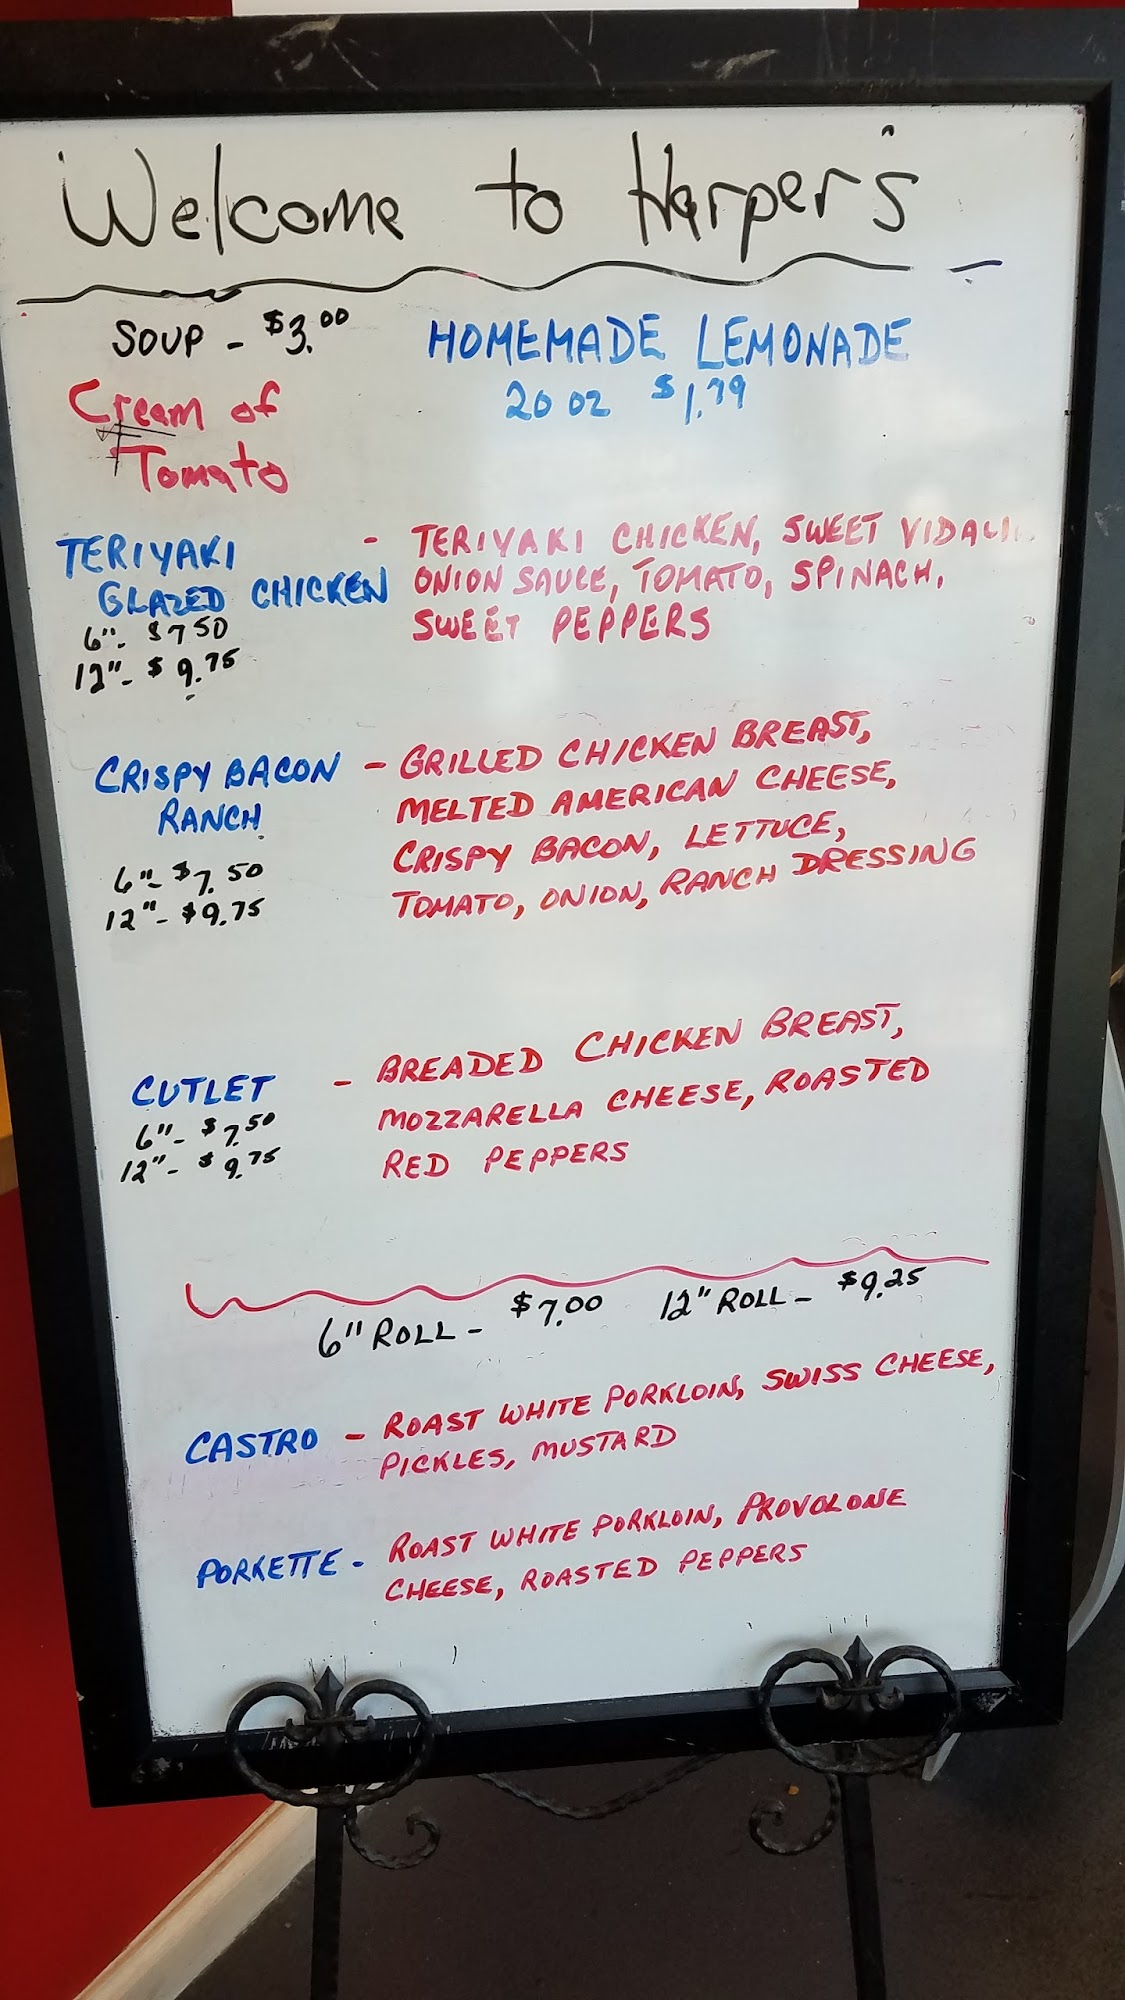 Welcome to Harper's
SOUP - $3.00
HOMEMADE LEMONADE
Cream of
20 oz $1.79
Tomato
TERIYAKI - TERIYAKI CHICKEN, SWEET
GLAZED CHICKEN ONION SAUCE, TOMATO, SPINACH,
6"- $7 50 SWEET PEPPERS
12"- $9.75
CRISPY BACON - GRILLED CHICKEN BREAST,
RANCH MELTED AMERICAN CHEESE,
6"- $7.50 CRISPY BACON, LETTUCE,
12"- $9.75 TOMATO, ONION, RANCH DRESSING
CUTLET - BREADED CHICKEN BREAST,
6"- $7.50 MOZZARELLA CHEESE, ROASTED
12"- $9.75 RED PEPPERS
6" ROLL - $7.00 12" ROLL - $9.25
CASTRO - ROAST WHITE PORKLOIN, SWISS CHEESE,
PICKLES, MUSTARD
PORKETTE - ROAST WHITE PORKLOIN, PROVOLONE
CHEESE, ROASTED PEPPERS